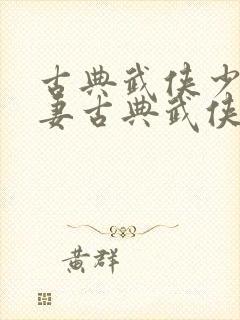 古典武侠少
妻古典武侠
黄群